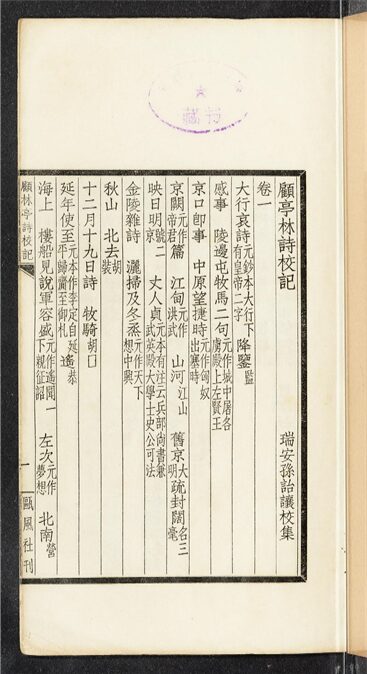 顧亭林詩校記
瑞安孫詒讓校集
卷一
大行哀詩元鈔本大行下有皇帝二字 降鑒監
感事 陵邊屯牧馬二句元作城中屠各虜殿上左賢王
京口卽事 中原望捷時元作匈奴出塞時
京闕元作帝君篇 江甸元作洪武 山河江山 舊京大明 疏封闊名三毫
映日明二號京 丈人貞元本有注云兵部尚書兼武英殿大學士史公可法
金陵雜詩 灑掃及冬烝元作天下想中興
秋山 北去胡裝
十二月十九日詩 牧騎胡□
延年使至元本作李定自延平歸齎至御札 遙恭
海上 樓船見說軍容盛元作遙聞一下親征詔 左次元作夢想 北南營
顧林亭詩校記
一
甌風社刊
藏書